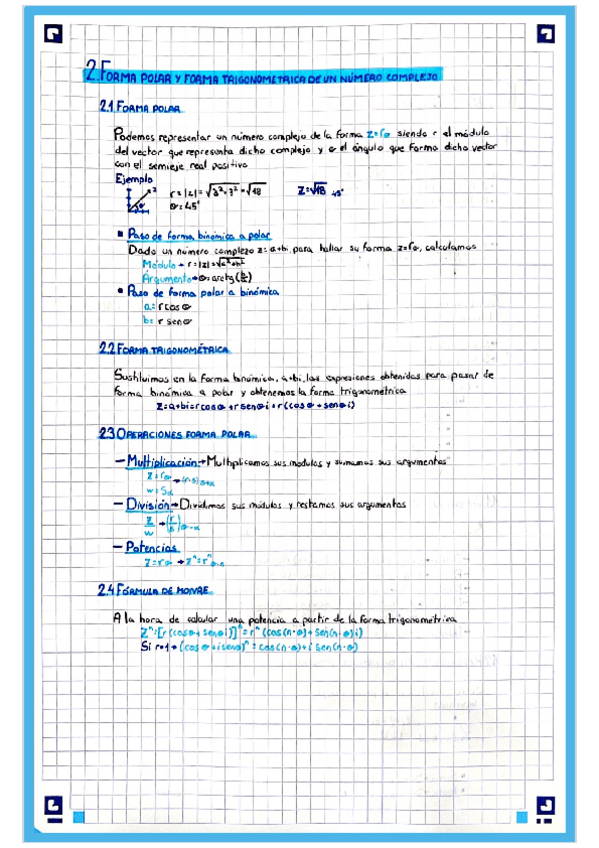 2. FORMA POLAR Y FORMA TRIGONOMETRICA DE UN NÚMERO COMPLEJO
2.1 FORMA POLAR
Podemos representar un número complejo de la forma z=rθ siendo r el módulo
del vector que representa dicho complejo y θ el ángulo que forma dicho vector
con el semieje real positivo
Ejemplo
r=|z|=√3²+3²=√18
Z=√18 45°
θ=45°
Paso de forma binómica a polar
Dado un número complejo z=a+bi para hallar su forma z=rθ, calculamos
Módulo → r=|z|=√a²+b²
Árgumento → θ=arctg(b/a)
Paso de forma polar a binómica
a=r cos θ
b=r sen θ
2.2 FORMA TRIGONOMÉTRICA
Sustituimos en la forma binómica, a+bi, las expresiones obtenidas para pasar de
forma binómica a polar y obtenemos la forma trigonometrica
Z=a+bi=rcosθ+rsenθi=r(cosθ+senθi)
2.3 OPERACIONES FORMA POLAR
— Multiplicación → Multiplicamos sus modulos y sumamos sus argumentos
z=rθ
w=sα → (r·s)θ+α
— División → Dividimos sus módulos y restamos sus argumentos
z/w → (r/s)θ-α
— Potencias
z=rθ → zⁿ=rⁿθ·n
2.4 FÓRMULA DE MOIVRE
A la hora de calcular una potencia a partir de la forma trigonometrica
Zⁿ=[r(cosθ+senθi)]ⁿ=rⁿ(cos(n·θ)+sen(n·θ)i)
Si r=1 → (cosθ+isenθ)ⁿ=cos(n·θ)+i sen(n·θ)